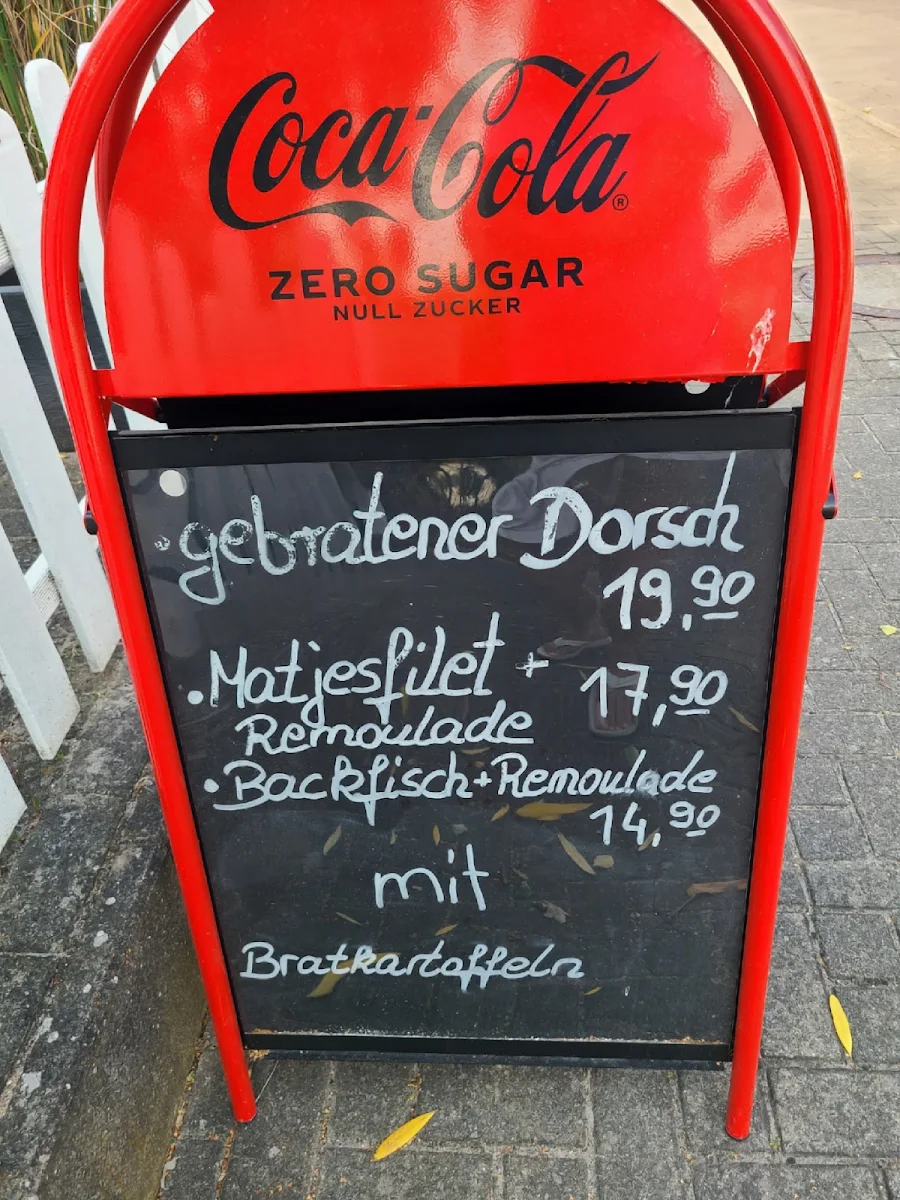 Coca-Cola®
ZERO SUGAR
NULL ZUCKER
• gebratener Dorsch
19,90
• Matjesfilet + 17,90
Remoulade
• Backfisch + Remoulade
14,90
mit
Bratkartoffeln